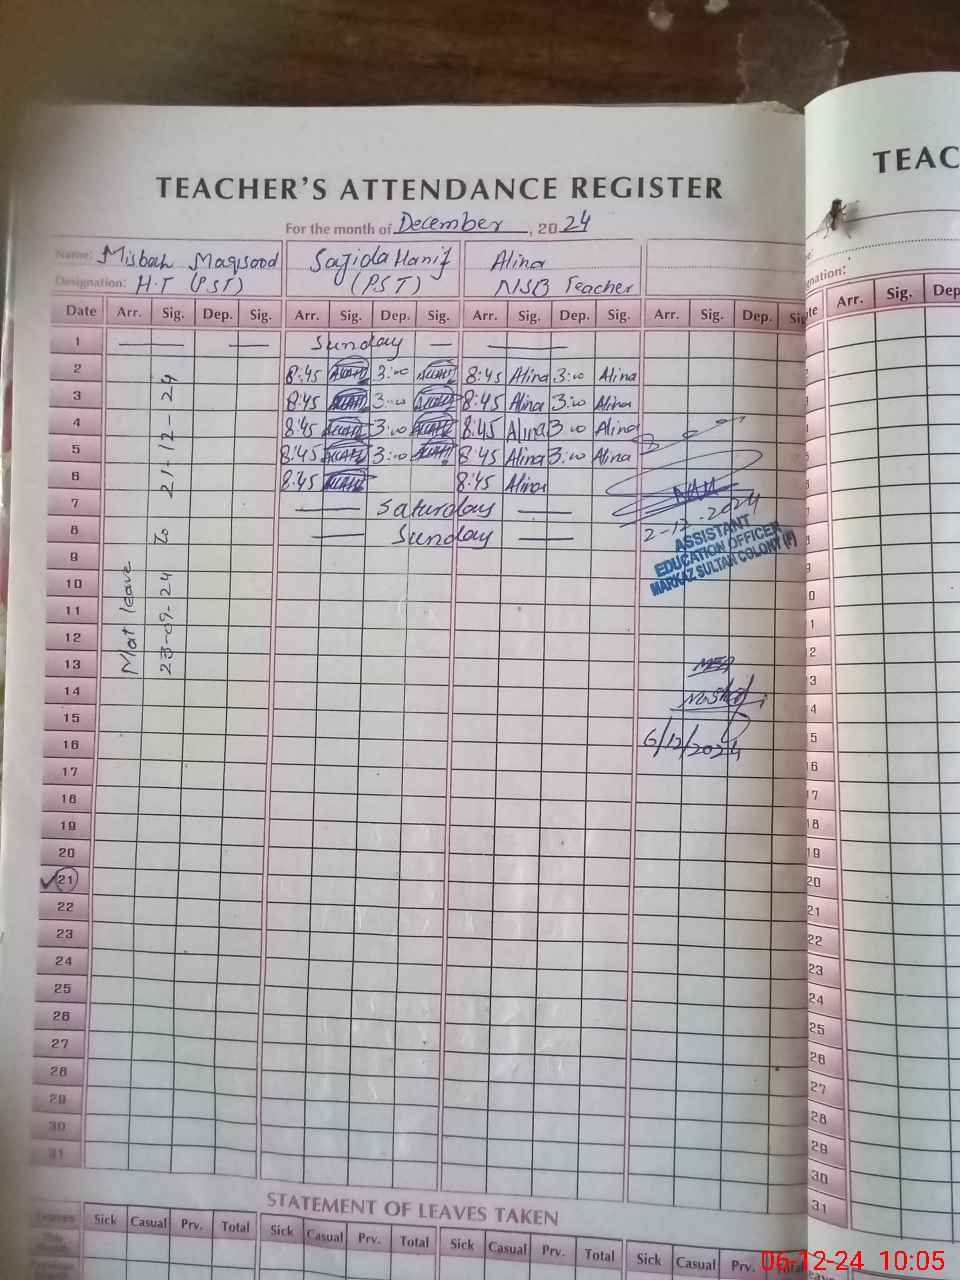 TEACHER'S ATTENDANCE REGISTER
TEAC
For the month of December, 2024
Name: Misbah Maqsood Sajida Hanif Alina
Designation: H.T (PST) (PST) NSB Teacher
gnation:
Date Arr. Sig. Dep. Sig. Arr. Sig. Dep. Sig. Arr. Sig. Dep. Sig. Arr. Sig. Dep. Sig
te Arr. Sig. Dep
1 Sunday
2 8:45 3:00 8:45 Alina 3:00 Alina
3 8:45 3:00 8:45 Alina 3:00 Alina
4 8:45 3:00 8:45 Alina 3:00 Alina
5 8:45 3:00 8:45 Alina 3:00 Alina
6 8:45 8:45 Alina
7 Saturday
8 Sunday
Mat leave
23-09-24 to 21-12-24
2-12-2024
ASSISTANT
EDUCATION OFFICER
MARKAZ SULTAN COLONY (F)
9
10
11
12
13
14
15
16
6/12/2024
17
18
19
20
21
22
23
24
25
26
27
28
29
30
31
STATEMENT OF LEAVES TAKEN
Leaves Sick Casual Prv. Total Sick Casual Prv. Total Sick Casual Prv. Total Sick Casual Prv. Total
06-12-24 10:05